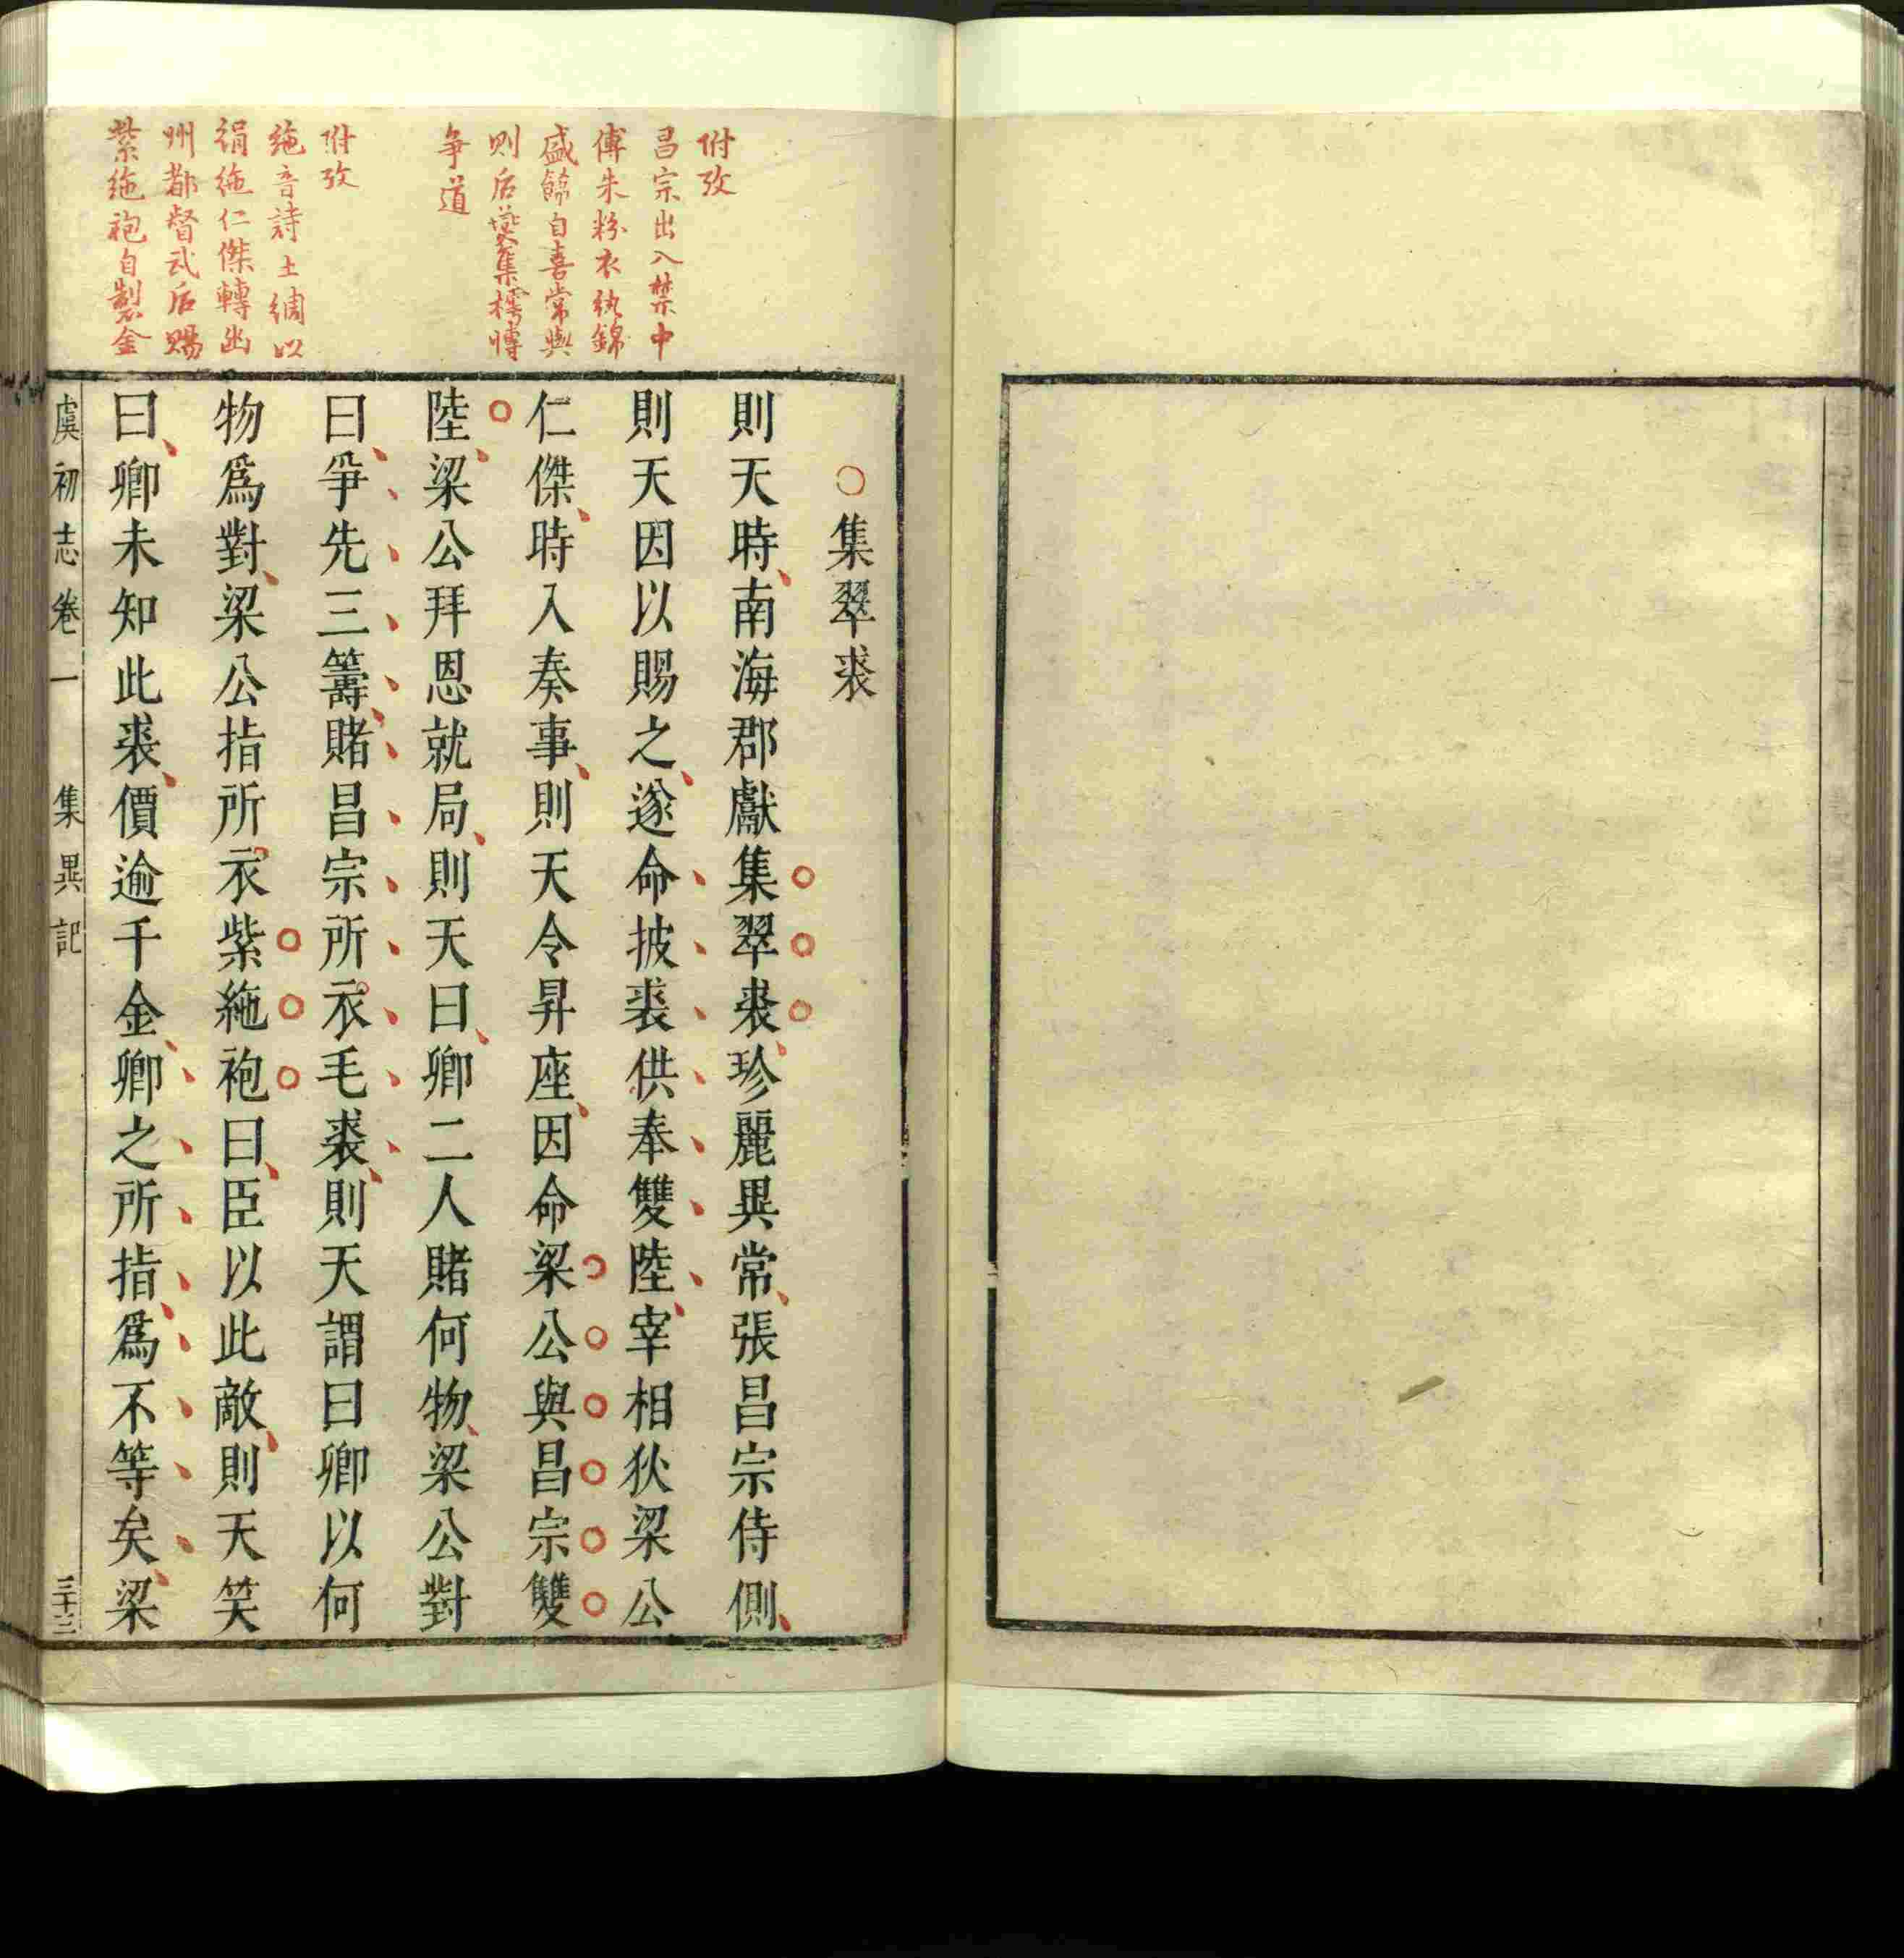 附攷
昌宗出入禁中
傅朱粉衣紈錦
盛飾自喜常與
則后燕集樗博
爭道
附攷
絁音詩土綢以
絹絁仁傑轉幽
州都督武后賜
紫絁袍自製金
○集翠裘
則天時南海郡獻集翠裘珍麗異常張昌宗侍側
則天因以賜之遂命披裘供奉雙陸宰相狄梁公
仁傑時入奏事則天令昇座因命梁公與昌宗雙
陸梁公拜恩就局則天曰卿二人賭何物梁公對
曰爭先三籌賭昌宗所衣毛裘則天謂曰卿以何
物爲對梁公指所衣紫絁袍曰臣以此敵則天笑
曰卿未知此裘價逾千金卿之所指爲不等矣梁
虞初志卷一 集異記 三十三